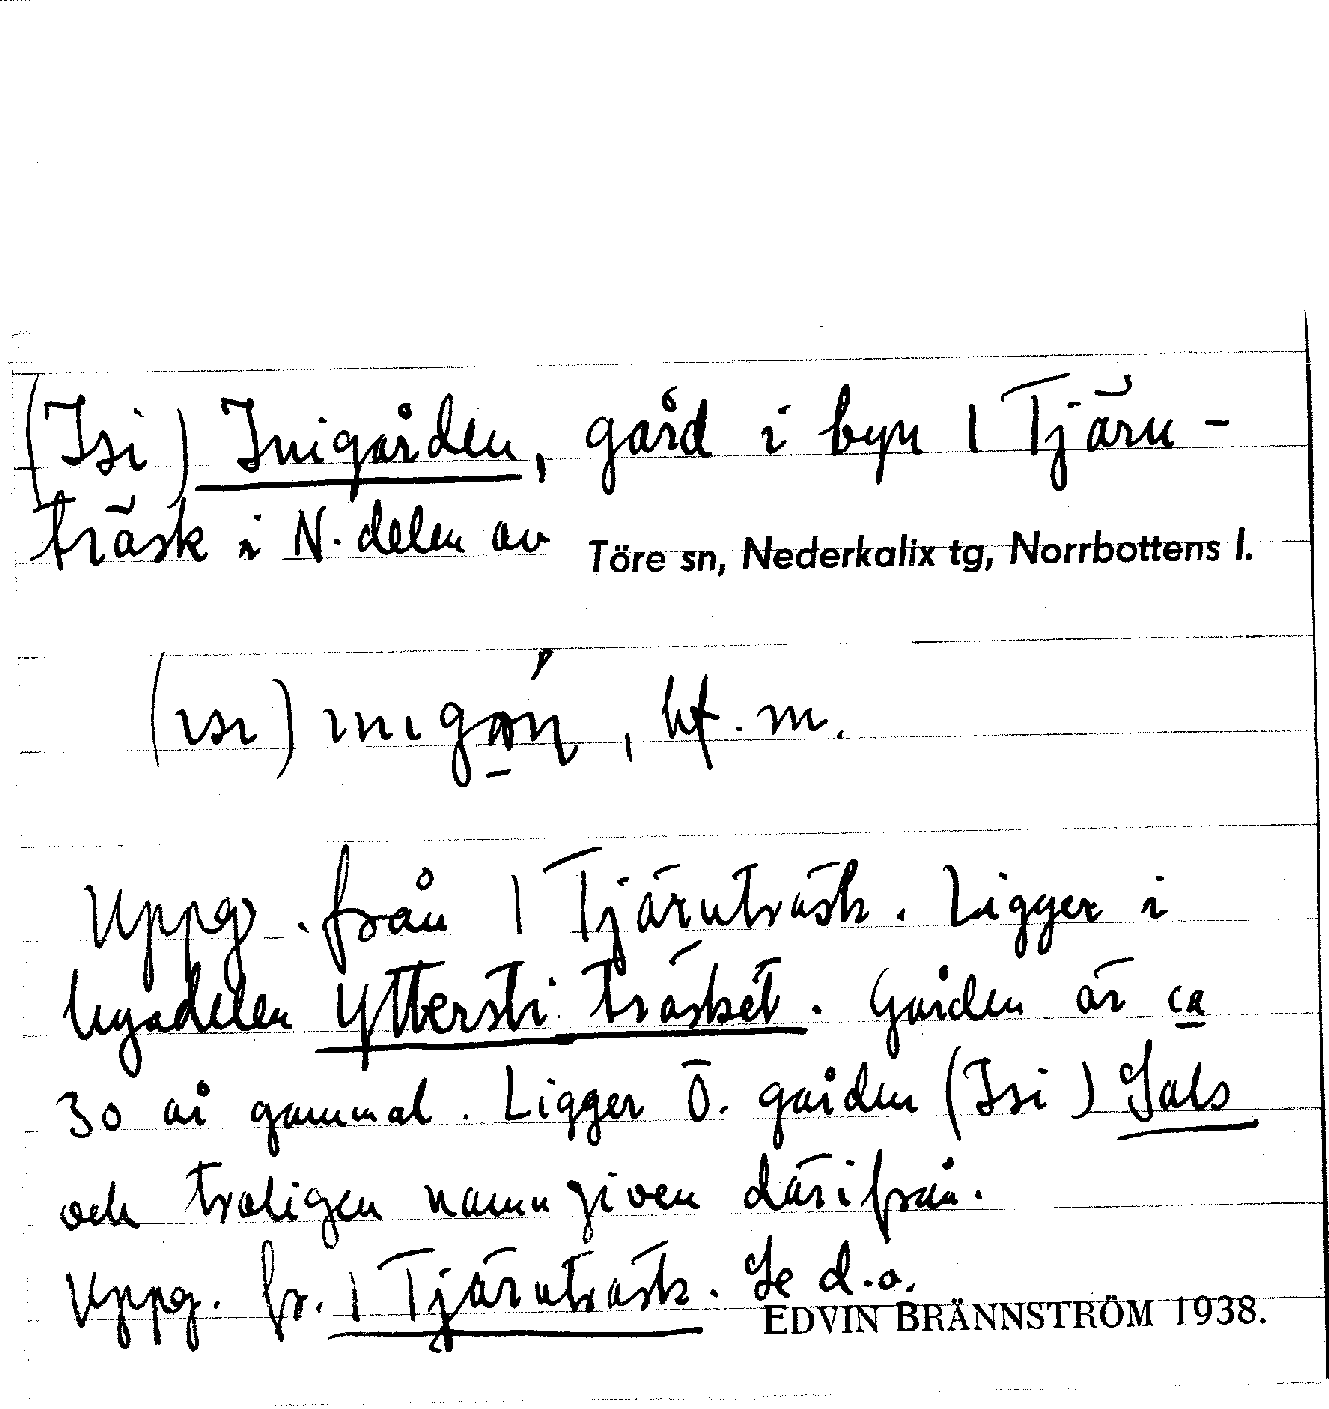 (Isi) Inigården, gård i byn 1 Tjärn-
träsk i N. delen av Töre sn, Nederkalix tg, Norrbottens l.
(ısı) ınıgån, bf. m.
Uppg. från 1 Tjärnträsk. Ligger i
bysdelen Yttersti träsket. Gården är ca
30 år gammal. Ligger Ö. gården (Isi) Jals
och troligen namngiven därifrån.
Uppg. fr. 1 Tjärnträsk. Se d.o.
EDVIN BRÄNNSTRÖM 1938.